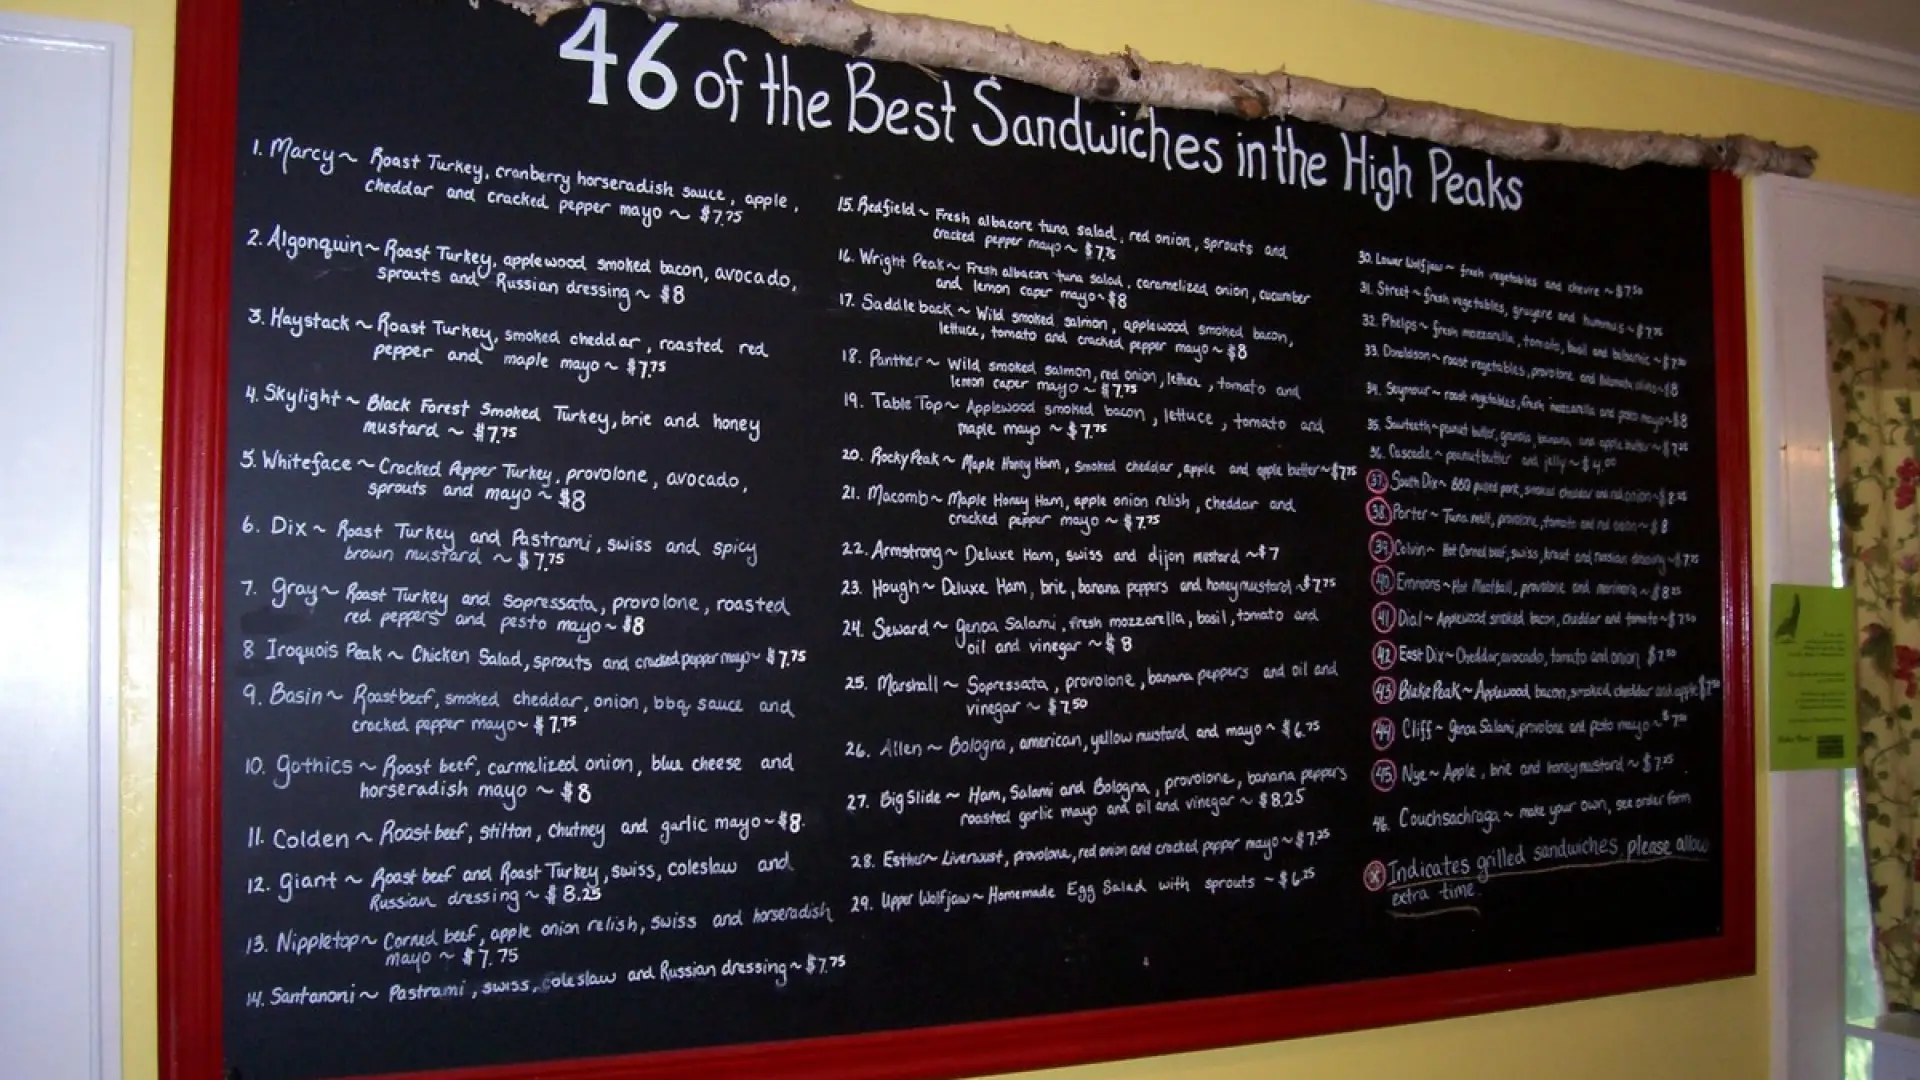 46 of the Best Sandwiches in the High Peaks
1. Marcy ~ Roast Turkey, cranberry horseradish sauce, apple,
cheddar and cracked pepper mayo ~ $7.75
2. Algonquin ~ Roast Turkey, applewood smoked bacon, avocado,
sprouts and Russian dressing ~ $8
3. Haystack ~ Roast Turkey, smoked cheddar, roasted red
pepper and maple mayo ~ $7.75
4. Skylight ~ Black Forest Smoked Turkey, brie and honey
mustard ~ $7.75
5. Whiteface ~ Cracked Pepper Turkey, provolone, avocado,
sprouts and mayo ~ $8
6. Dix ~ Roast Turkey and Pastrami, swiss and spicy
brown mustard ~ $7.75
7. Gray ~ Roast Turkey and Sopressata, provolone, roasted
red peppers and pesto mayo ~ $8
8 Iroquois Peak ~ Chicken Salad, sprouts and cracked pepper mayo ~ $7.75
9. Basin ~ Roast beef, smoked cheddar, onion, bbq sauce and
cracked pepper mayo ~ $7.75
10. Gothics ~ Roast beef, carmelized onion, blue cheese and
horseradish mayo ~ $8
11. Colden ~ Roast beef, stilton, chutney and garlic mayo ~ $8.
12. Giant ~ Roast beef and Roast Turkey, swiss, coleslaw and
Russian dressing ~ $8.25
13. Nippletop ~ Corned beef, apple onion relish, swiss and horseradish
mayo ~ $7.75
14. Santanoni ~ Pastrami, swiss, coleslaw and Russian dressing ~ $7.75
15. Redfield ~ Fresh albacore tuna salad, red onion, sprouts and
cracked pepper mayo ~ $7.75
16. Wright Peak ~ Fresh albacore tuna salad, caramelized onion, cucumber
and lemon caper mayo ~ $8
17. Saddleback ~ Wild smoked salmon, applewood smoked bacon,
lettuce, tomato and cracked pepper mayo ~ $8
18. Panther ~ Wild smoked salmon, red onion, lettuce, tomato and
lemon caper mayo ~ $7.75
19. Table Top ~ Applewood smoked bacon, lettuce, tomato and
maple mayo ~ $7.75
20. Rocky Peak ~ Maple Honey Ham, smoked cheddar, apple and apple butter ~ $7.75
21. Macomb ~ Maple Honey Ham, apple onion relish, cheddar and
cracked pepper mayo ~ $7.75
22. Armstrong ~ Deluxe Ham, swiss and dijon mustard ~ $7
23. Hough ~ Deluxe Ham, brie, banana peppers and honey mustard ~ $7.75
24. Seward ~ Genoa Salami, fresh mozzarella, basil, tomato and
oil and vinegar ~ $8
25. Marshall ~ Sopressata, provolone, banana peppers and oil and
vinegar ~ $7.50
26. Allen ~ Bologna, american, yellow mustard and mayo ~ $6.75
27. Big Slide ~ Ham, Salami and Bologna, provolone, banana peppers
roasted garlic mayo and oil and vinegar ~ $8.25
28. Esther ~ Liverwurst, provolone, red onion and cracked pepper mayo ~ $7.25
29. Upper Wolfjaw ~ Homemade Egg Salad with sprouts ~ $6.25
30. Lower Wolfjaw ~ fresh vegetables and chevre ~ $7.50
31. Street ~ fresh vegetables, gruyere and hummus ~
32. Phelps ~ fresh mozzarella, tomato, basil and balsamic ~
33. Donaldson ~ roast vegetables, provolone and ~ $8
34. Seymour ~ roast vegetables, fresh mozzarella and pesto mayo ~ $8
35. Sawteeth ~ peanut butter, granola, banana, and apple butter ~ $7.25
36. Cascade ~ peanut butter and jelly ~ $4.00
37. South Dix ~ BBQ pulled pork, smoked cheddar and red onion ~ $8.25
38. Porter ~ Tuna melt, provolone, tomato and red onion ~ $8
39. Colvin ~ Hot Corned beef, swiss, kraut and russian dressing ~ $7.75
40. Emmons ~ Hot Meatball, provolone and marinara ~ $8.25
41. Dial ~ Applewood smoked bacon, cheddar and tomato ~ $7.50
42. East Dix ~ Cheddar, avocado, tomato and onion $7.50
43. Blake Peak ~ Applewood bacon, smoked cheddar and apple $7.50
44. Cliff ~ Genoa Salami, provolone and pesto mayo ~
45. Nye ~ Apple, brie and honey mustard ~ $7.25
46. Couchsachraga ~ make your own, see order form
x Indicates grilled sandwiches, please allow
extra time.